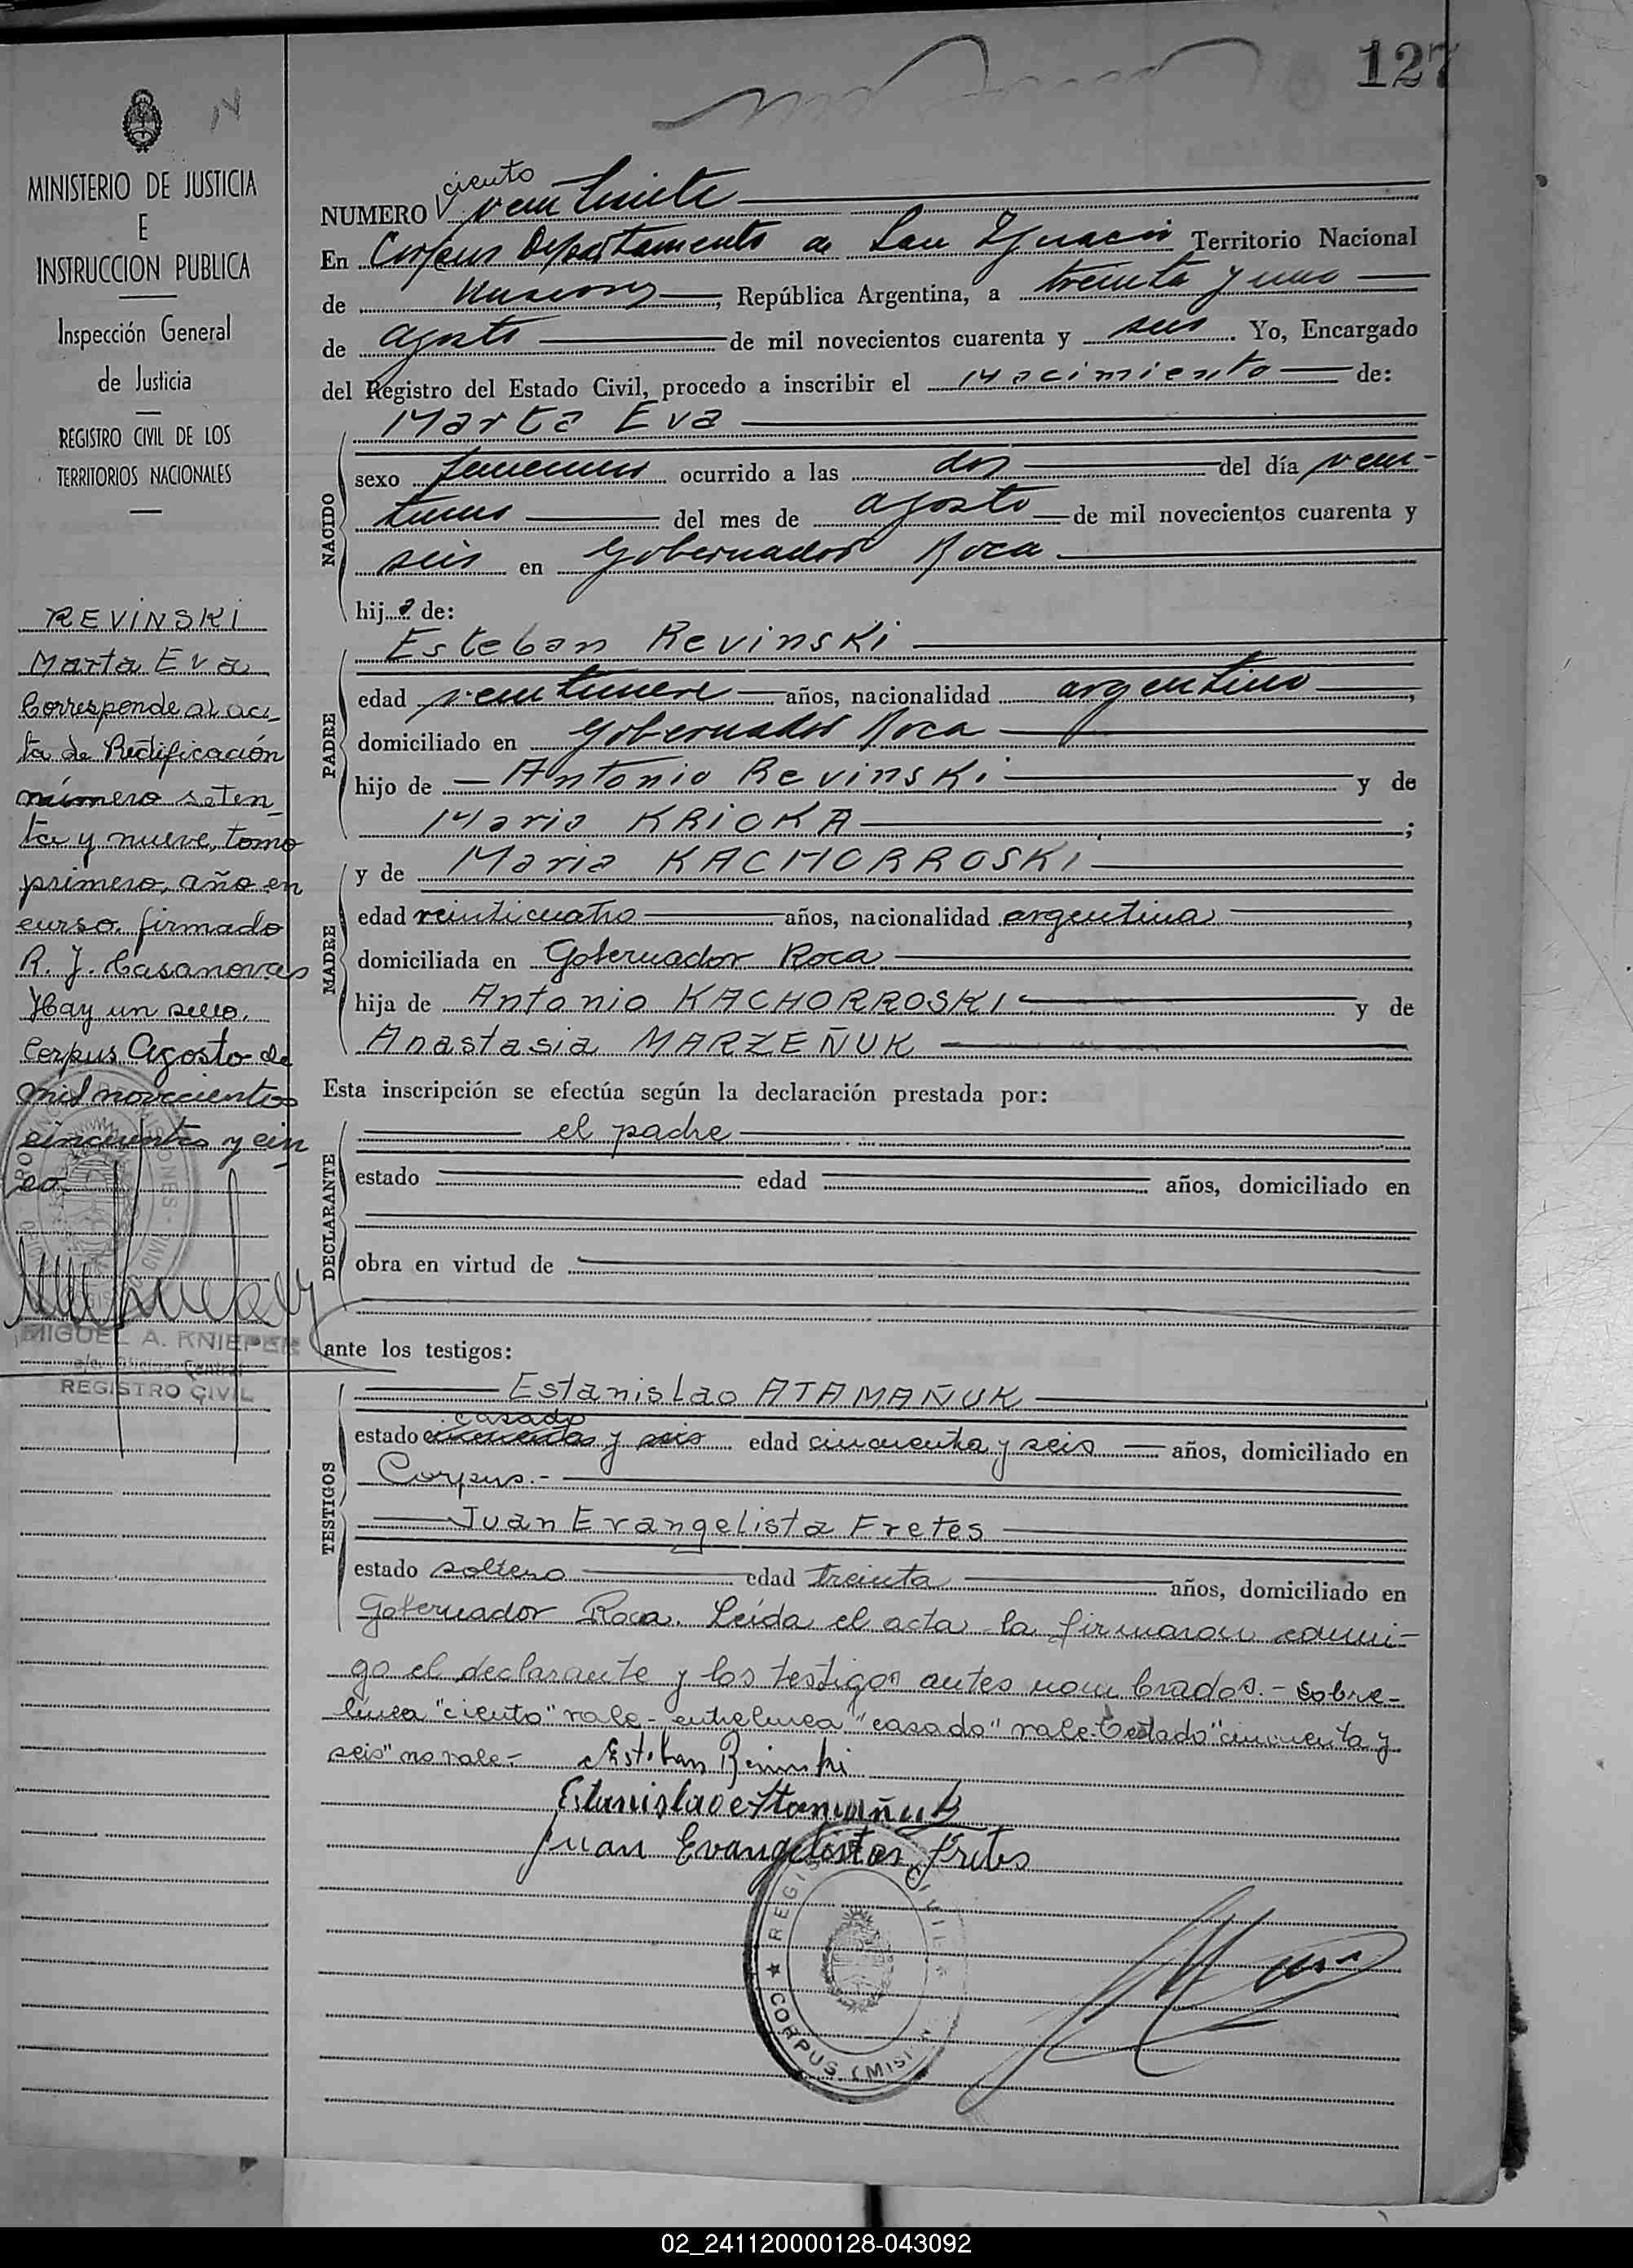 127
MINISTERIO DE JUSTICIA
E
INSTRUCCION PUBLICA
Inspección General
de Justicia
REGISTRO CIVIL DE LOS
TERRITORIOS NACIONALES
REVINSKI
Marta Eva
Corresponde al ac-
ta de Rectificación
número seten-
ta y nueve, tomo
primero, año en
curso. firmado
R. J. Casanovas
Hay un sello.
Corpus Agosto de
mil novecientos
cincuenta y cin
co.
MIGUEL A. KNIEPER
REGISTRO CIVIL
ciento
NUMERO veintisiete
En Corpus Departamento de San Ignacio Territorio Nacional
de Misiones, República Argentina, a treinta y uno
de agosto de mil novecientos cuarenta y seis. Yo, Encargado
del Registro del Estado Civil, procedo a inscribir el Nacimiento de:
Marta Eva
NACIDO
sexo femenino ocurrido a las dos del día vein-
tiuno del mes de agosto de mil novecientos cuarenta y
seis en Gobernador Roca
hija de:
Esteban Revinski
PADRE
edad veintinueve años, nacionalidad argentino,
domiciliado en Gobernador Roca
hijo de Antonio Revinski y de
Maria KRICKA;
y de Maria KACHORROSKI
MADRE
edad veinticuatro años, nacionalidad argentina,
domiciliada en Gobernador Roca
hija de Antonio KACHORROSKI y de
Anastasia MARZEÑUK
Esta inscripción se efectúa según la declaración prestada por:
el padre
DECLARANTE
estado edad años, domiciliado en
obra en virtud de
ante los testigos:
Estanislao ATAMAÑUK
TESTIGOS
casado
estado cincuenta y seis edad cincuenta y seis años, domiciliado en
Corpus.-
Juan Evangelista Fretes
estado soltero edad treinta años, domiciliado en
Gobernador Roca. Leída el acta la firmaron conmi-
go el declarante y los testigos antes nombrados.- Sobre-
línea "ciento" vale- entrelinea "casado" vale- testado "cincuenta y
seis" no vale- Esteban Revinski
Estanislao Atamañuk
Juan Evangelista Fretes
REGISTRO CIVIL
CORPUS (MISI
02_241120000128-043092